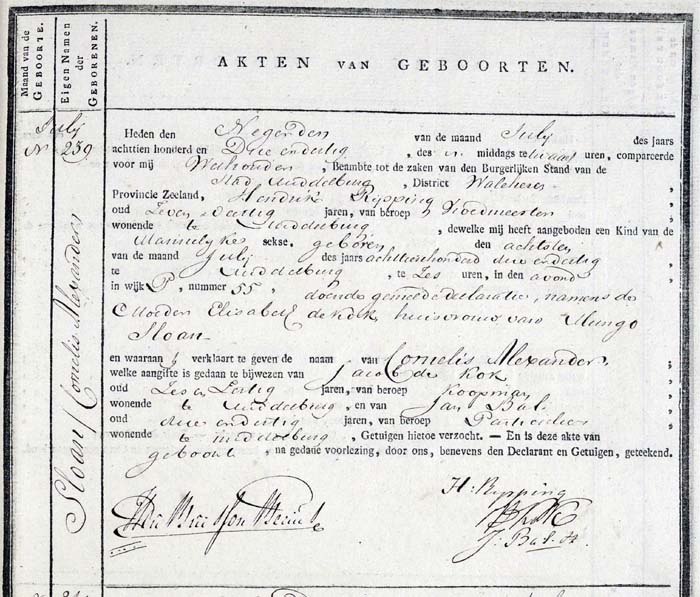 Maand van de
GEBOORTE.
Eigen Namen
der
GEBORENEN.
AKTEN VAN GEBOORTEN.
July
N 239
Sloan / Cornelis Alexander
Heden den Negenden van de maand July des jaars
achttien honderd en Drie endertig , des n. middags te twaalf uren, compareerde
voor mij Wethouder , Beambte tot de zaken van den Burgerlijken Stand van de
Stad Middelburg , District Walcheren ,
Provincie Zeeland, Hendrik Rijpping ,
oud Zeven dertig jaren, van beroep Vroedmeester
wonende te Middelburg , dewelke mij heeft aangeboden een Kind van de
Mannelyke sekse, geboren den achtsten
van de maand July des jaars achttienhonderd drie endertig ,
te Middelburg , te Zes uren, in den avond
in wijk P , nummer 55 , doende gemeede declaratie, namens de
Moeder Elisabeth de Kok huisvrouw van Mungo
Sloan
en waaraan verklaart te geven de naam van Cornelis Alexander ,
welke aangifte is gedaan te bijwezen van Jacob de Kok
oud Zes en dertig jaren, van beroep Koopman
wonende te Middelburg , en van Jan Bal
oud drie endertig jaren, van beroep Particulier
wonende te middelburg , Getuigen hiertoe verzocht. — En is deze akte van
geboorte , na gedane voorlezing, door ons, benevens den Declarant en Getuigen, geteekend.
H: Rypping
J: Bal